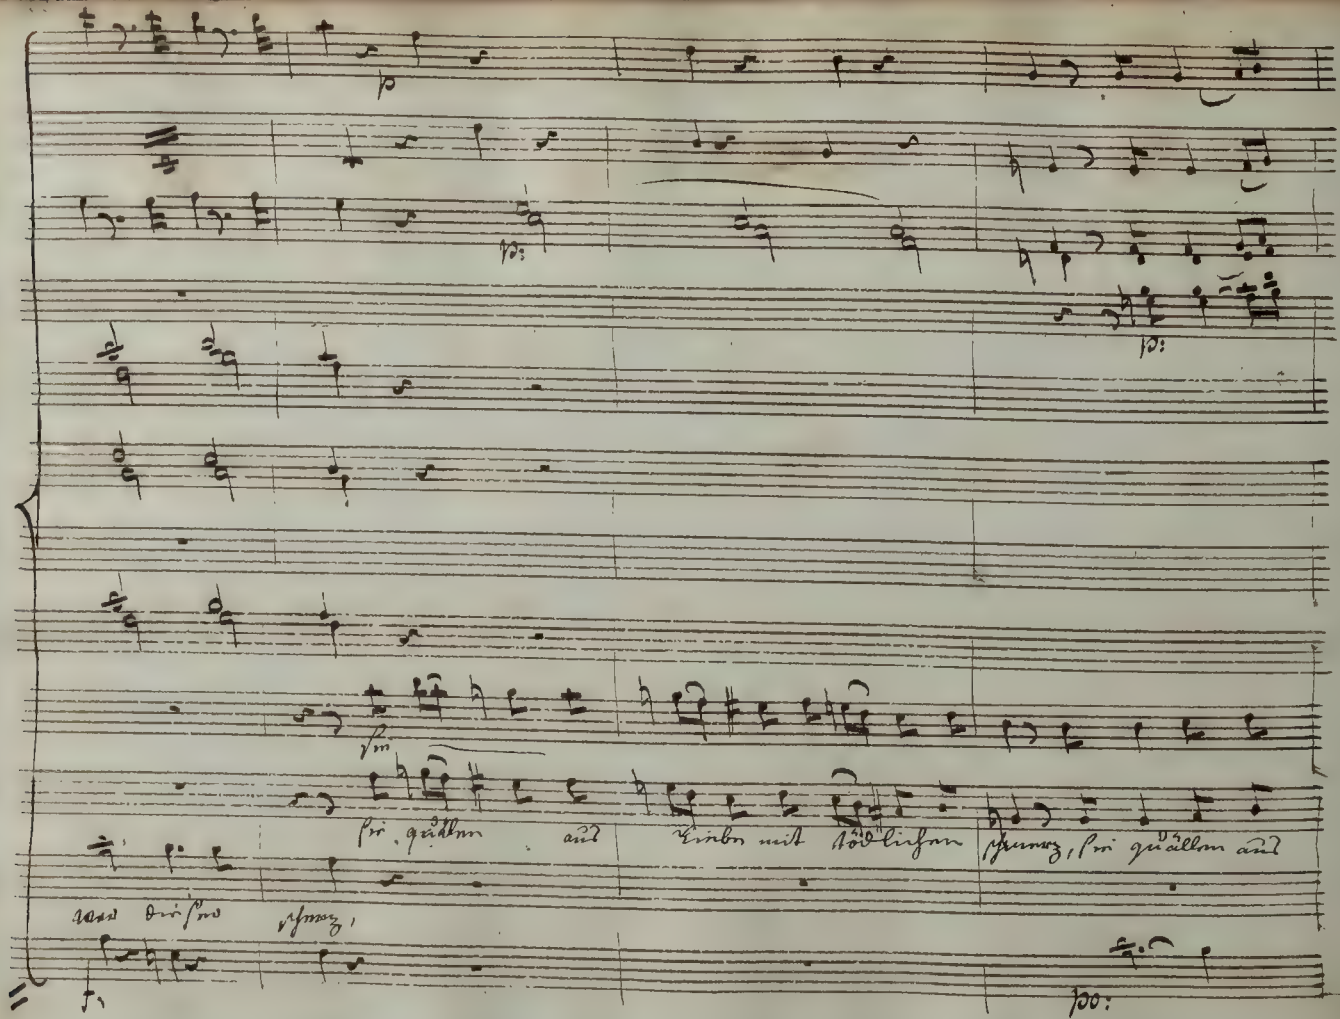 p
p:
p:
Sie
Sie quällen aus Liebe mit tödlichen schmerz, Sie quällen aus
dieser schmerz,
f.
po: